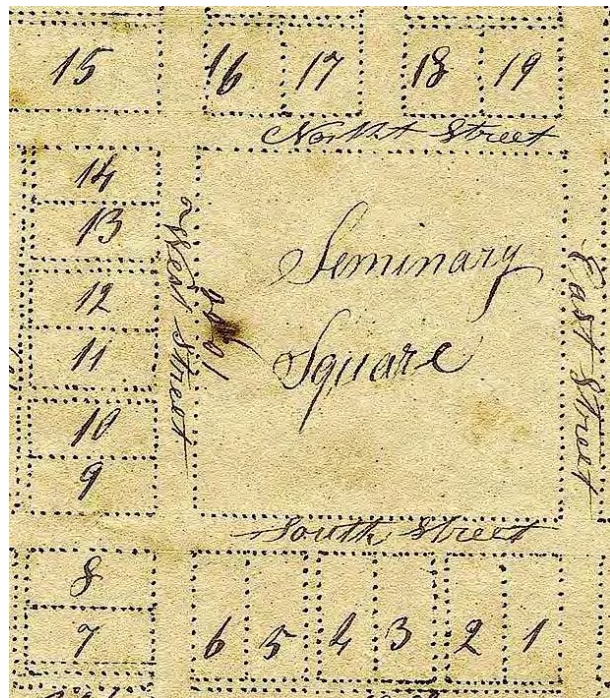 15 16 17 18 19
North Street
14
13
12
11
10
9
West Street
Seminary
Square
East Street
South Street
8
7
6 5 4 3 2 1